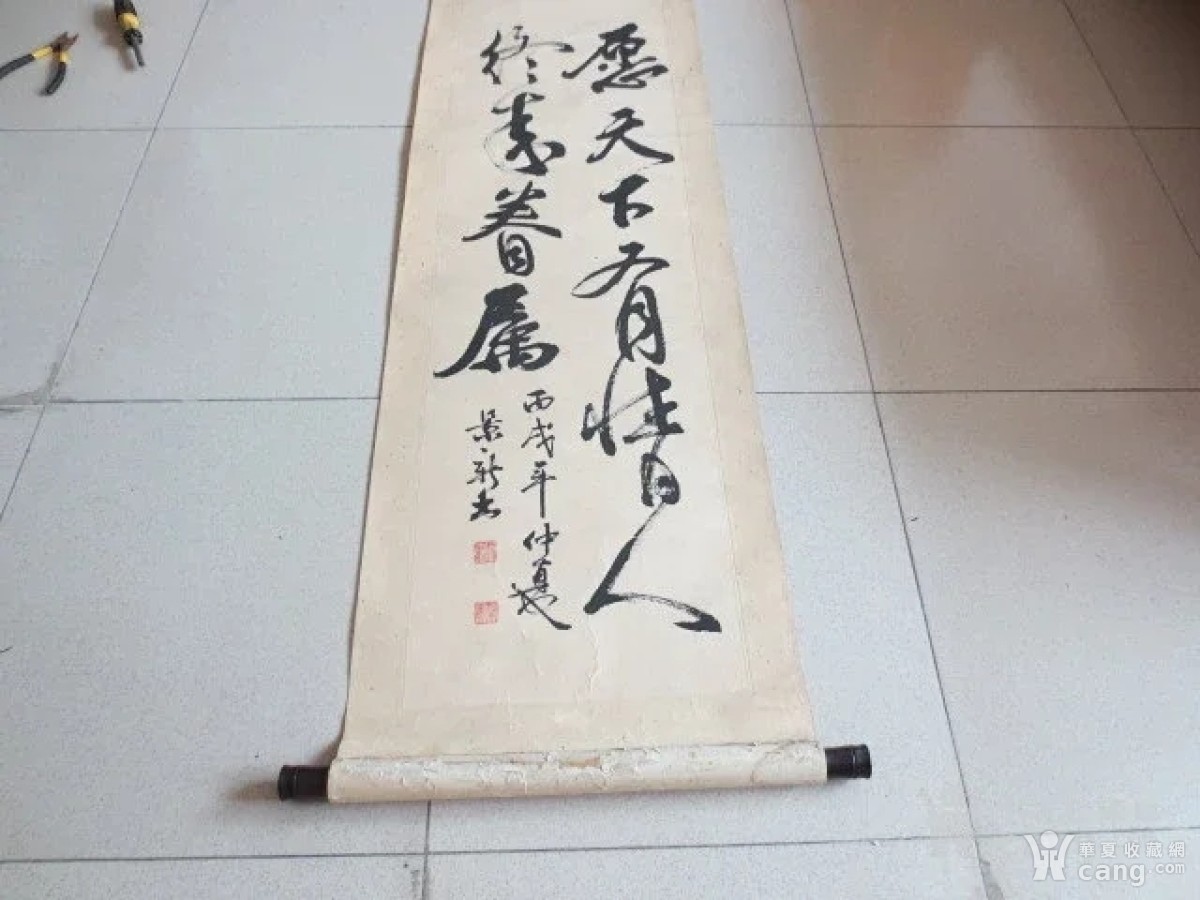 愿天下有情人
终成眷属
丙戌年仲夏
景新书
華夏收藏網
cang.com